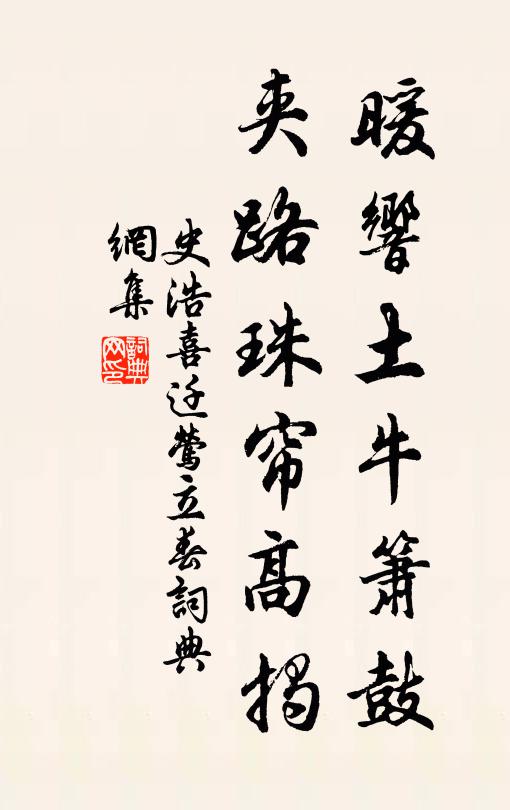 暖響土牛簫鼓
夾路珠帘高揭
史浩喜迁鶯立春詞典
網集
詞典网印